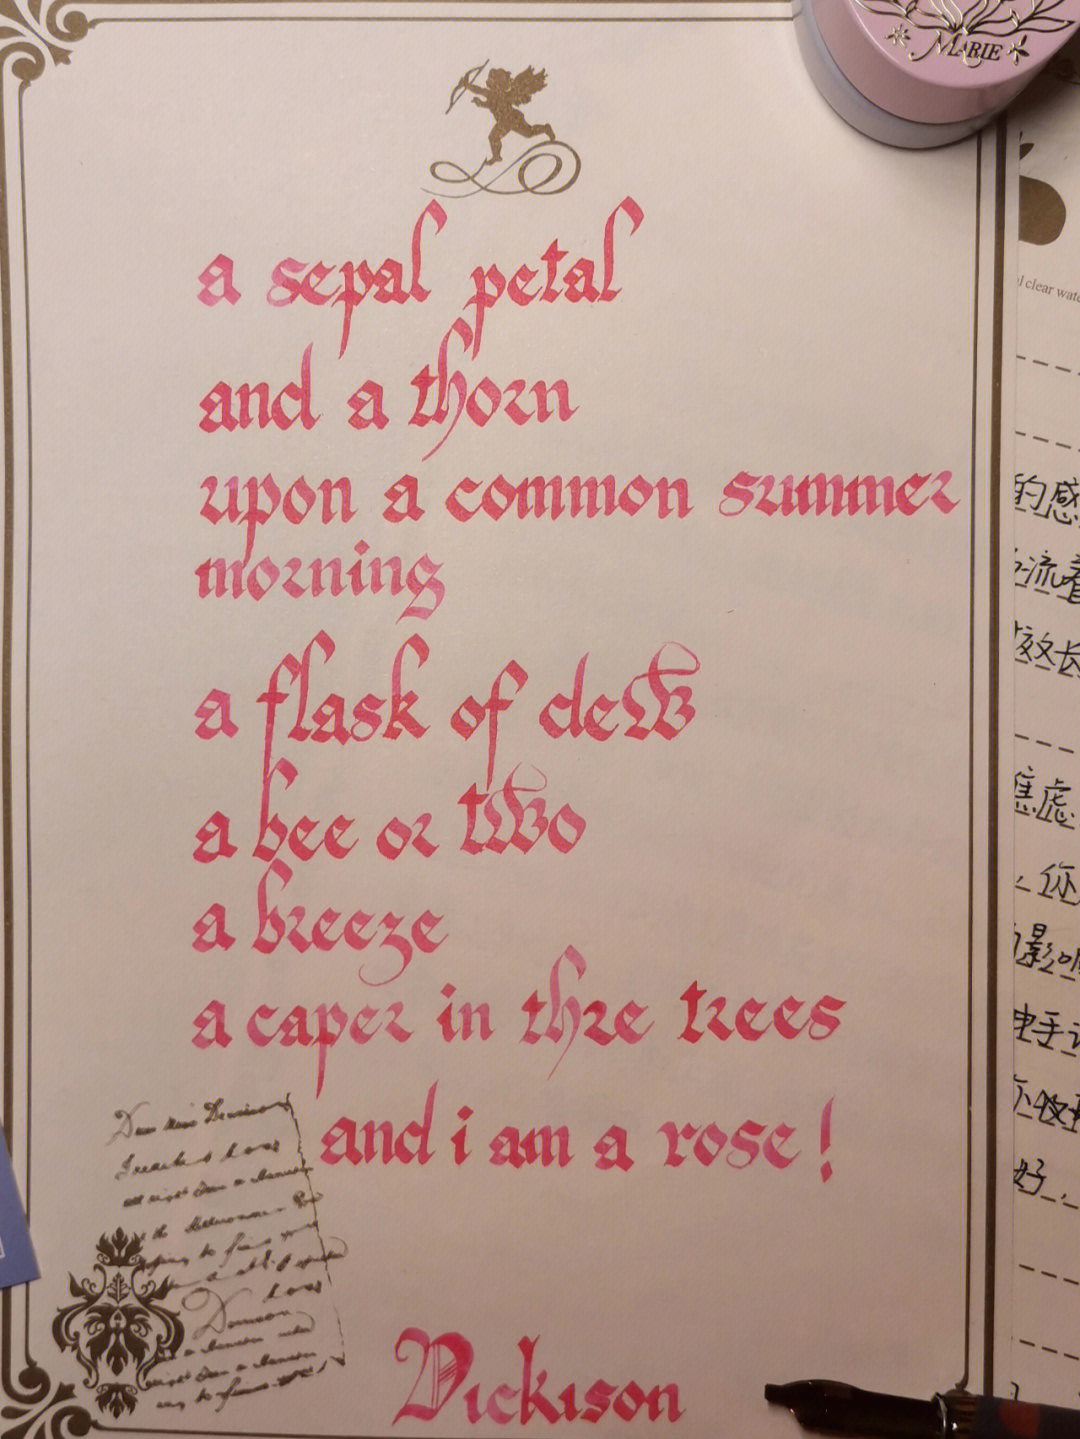 MARIE
a sepal petal
and a thorn
upon a common summer
morning
a flask of dew
a bee or two
a breeze
a caper in thre trees
and i am a rose!
Dickison
clear
的感
流着
焦虑
你
影
好,